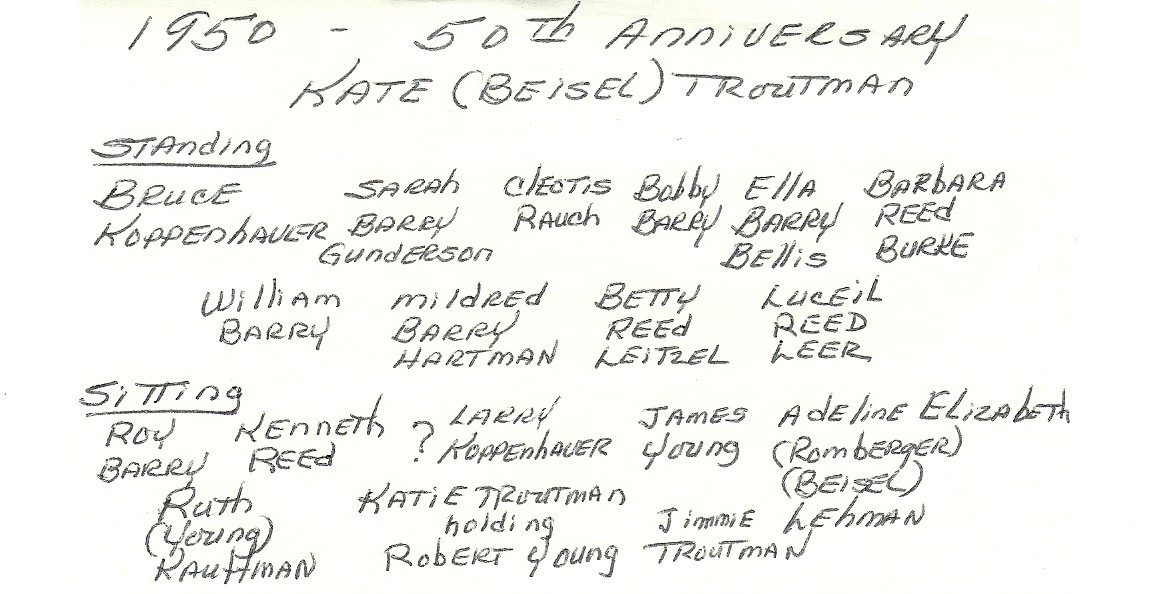 1950 - 50th ANNIVERSARY
KATE (BEISEL) TROUTMAN
STANDING
BRUCE SARAH CLEOTIS Bobby Ella BARBARA
KOPPENHAUER BARRY RAUCH BARRY BARRY REEd
GundERSON BEllis BURKE
William mildRED BETTY LUCEIL
BARRY BARRY REEd REED
HARTMAN LEITZEL LEER
SiTTing
ROY KENNETH ? LARRY JAMES AdELINE ELIZAbETH
BARRY REEd KOPPENHAUER Young (Romberger)
(BEISEL)
Ruth KATIE TROUTMAN
(Young) holding Jimmie LEHMAN
KAUFFMAN ROBERT Young TROUTMAN